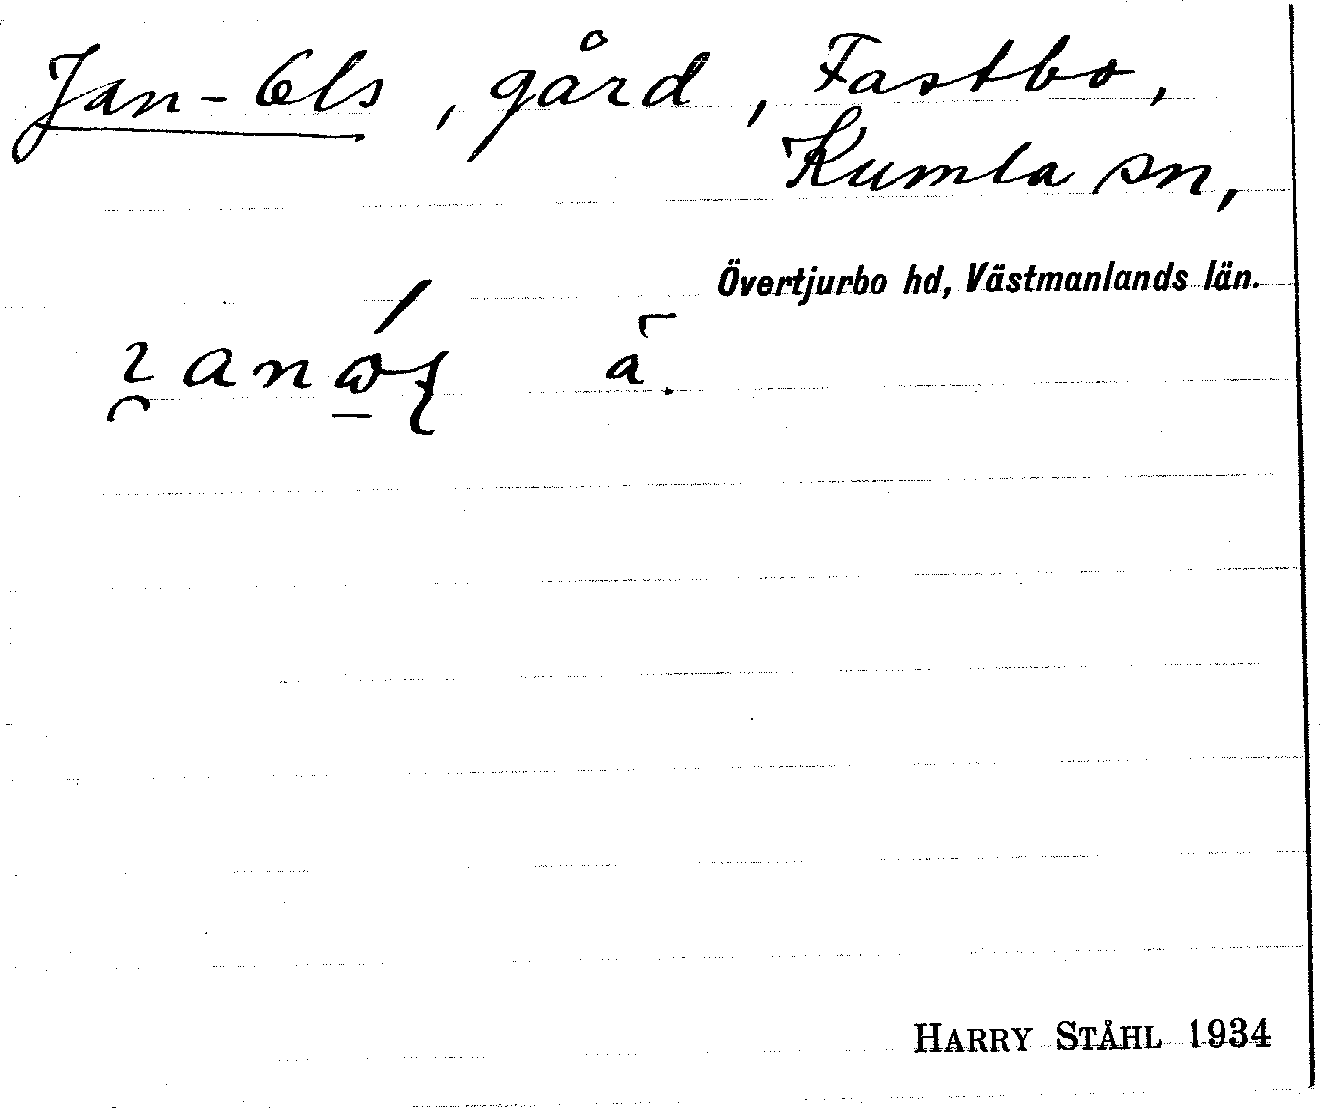 Jan-Ols, gård, Fastbo,
Kumla sn,
Övertjurbo hd, Västmanlands län.
HARRY STÅHL 1934